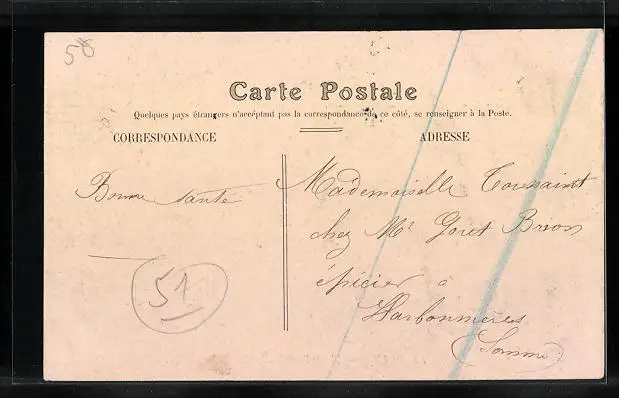 58
Carte Postale
Quelques pays étrangers n'acceptant pas la correspondance de ce côté, se renseigner à la Poste.
CORRESPONDANCE
ADRESSE
Bonne santé
51
Mademoiselle Toussaint
chez Mr Goret Breon
épicier a
Harbonnieres
(Somme)